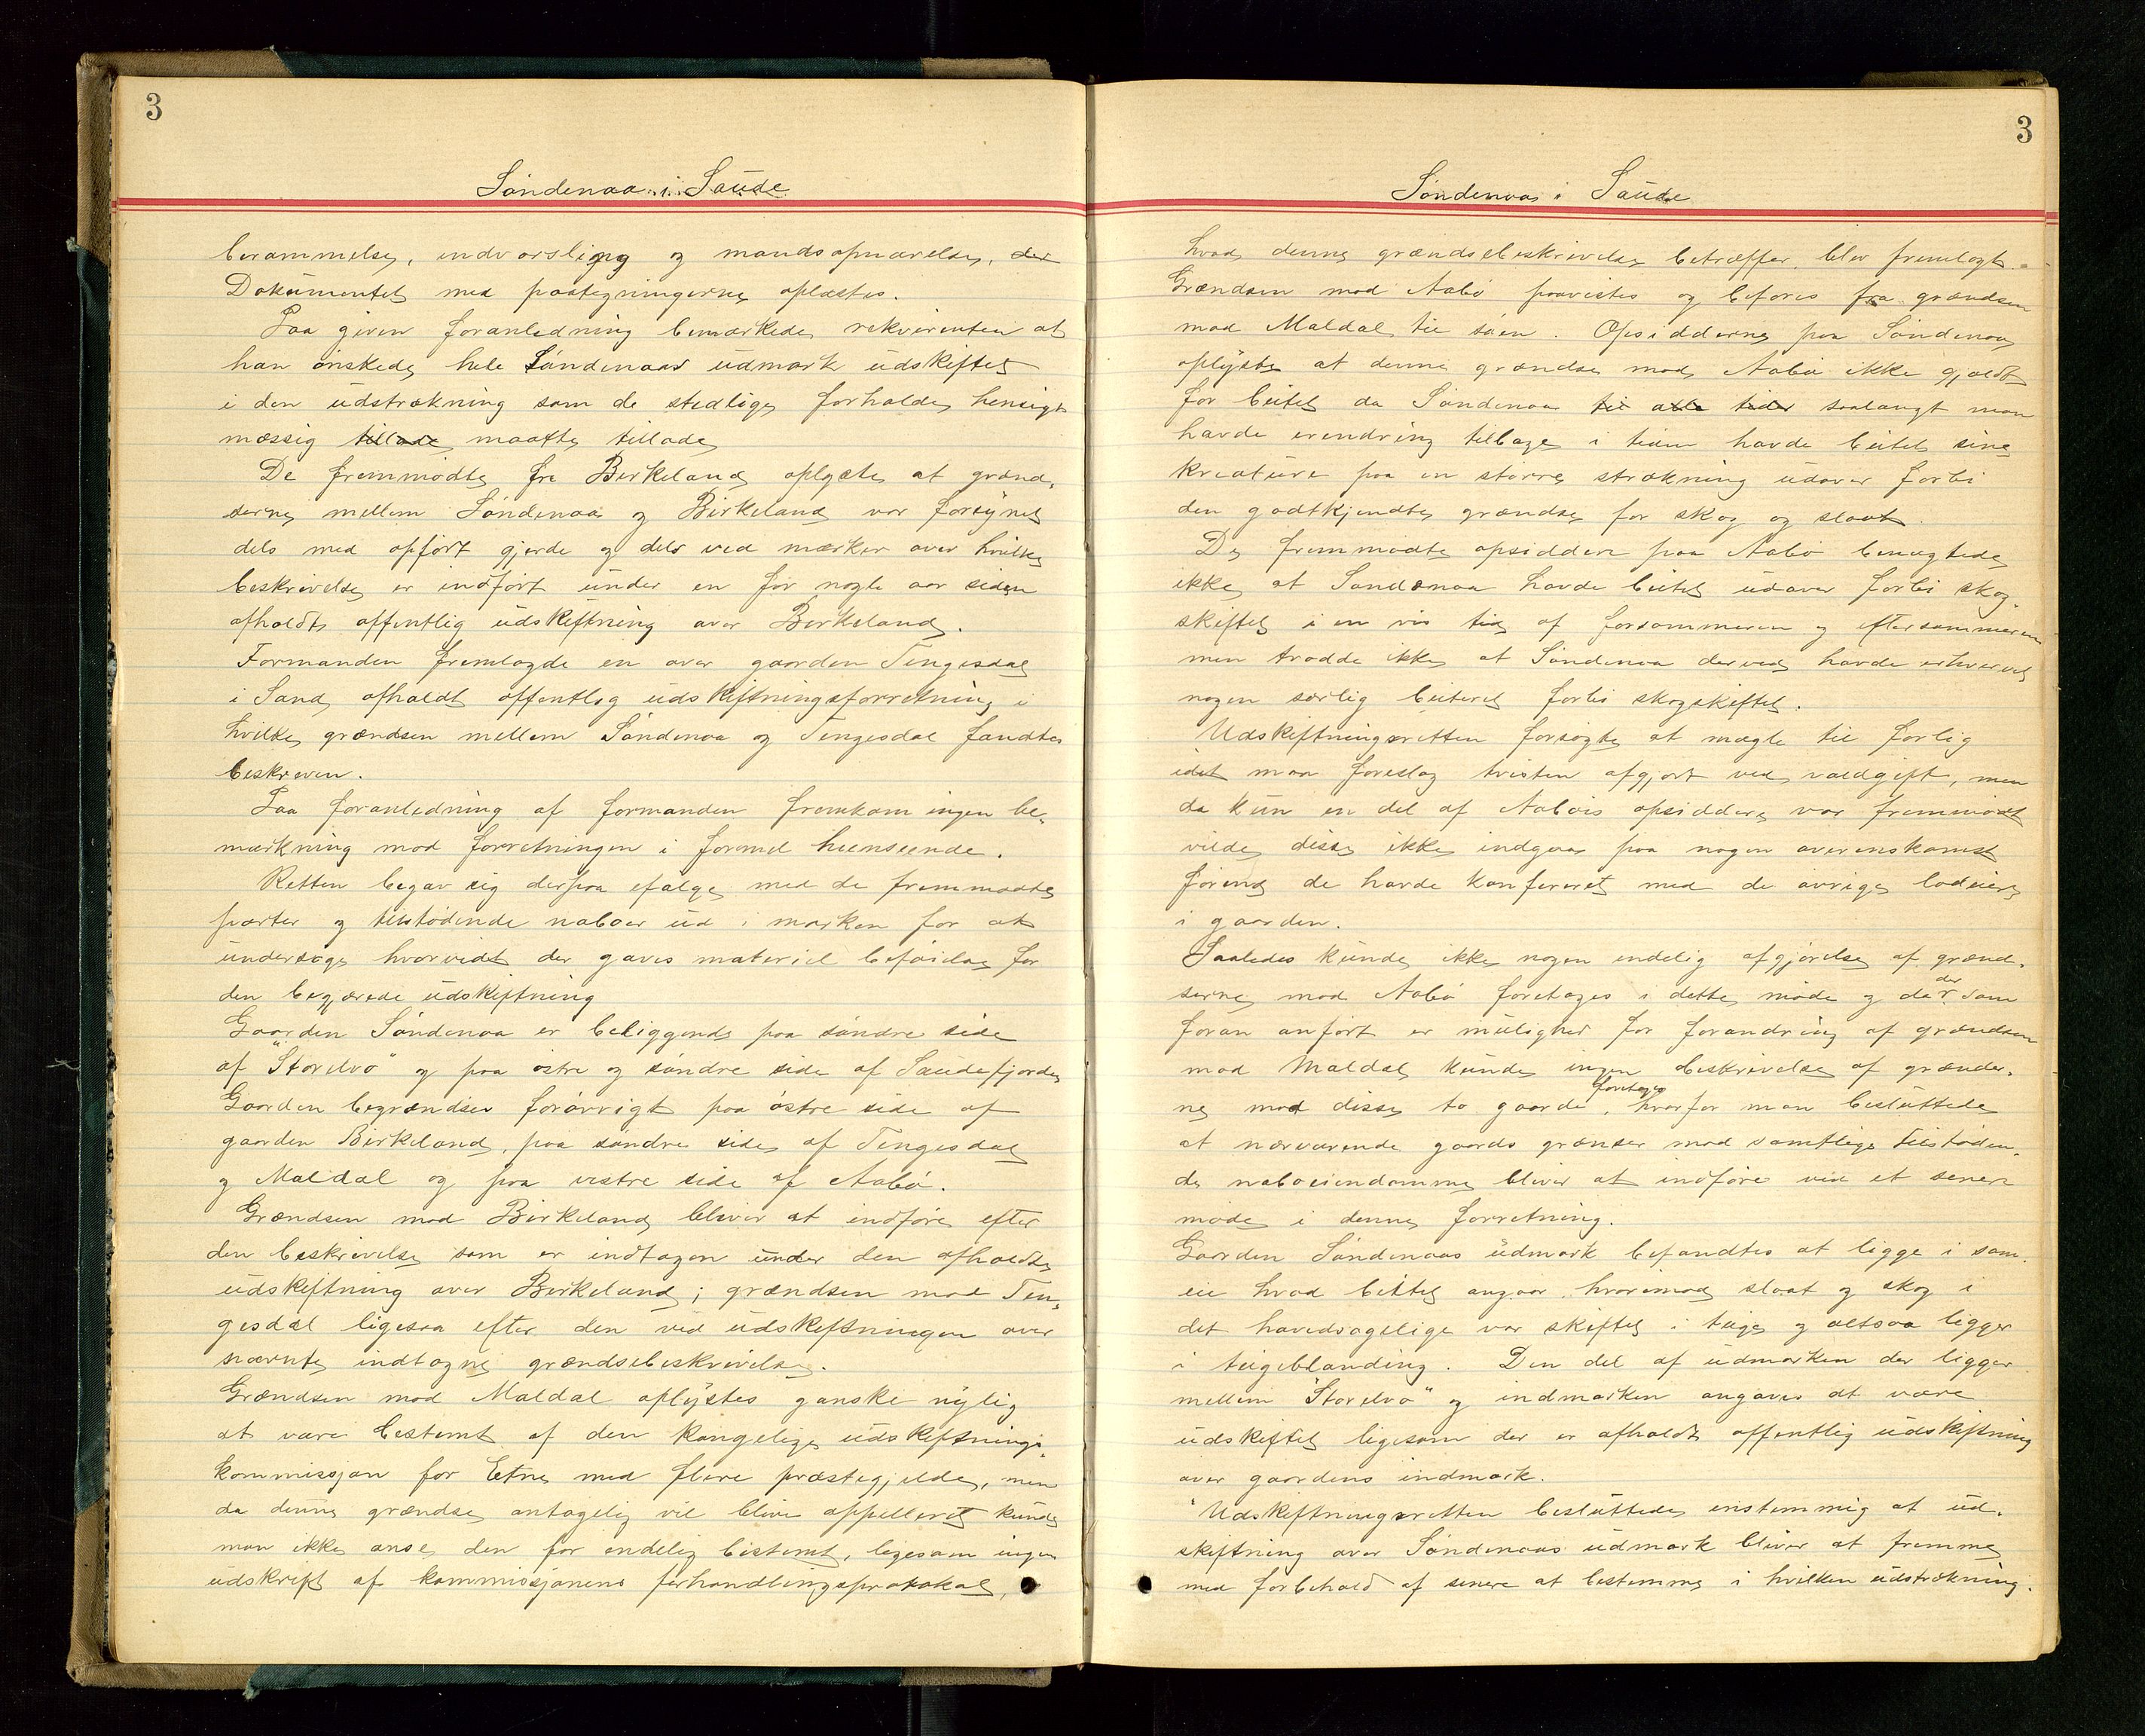 3
Söndenaa i Saude
berammelse, indvarsling og mandsopnævnelse, der
Dokumentet med paategningerne oplæstes.
Paa given foranledning bemærkede rekvirenten at
han önskede hele Söndenaas udmark udskiftet
i den udstrækning som de stedlige forholde hensigts
mæssig tillade maatte tillade
De fremmödte fra Birkeland oplyste at grænd-
serne mellem Söndenaa og Birkeland var forsynet
dels med opfört gjerde og dels ved mærker over hvilke
beskrivelse er indfört under en for nogle aar siden
afholdt offentlig udskiftning over Birkeland.
Formanden fremlagde en over gaarden Tengesdal
i Sand afholdt offentlig udskiftningsforretning i
hvilke grændsen mellem Söndenaa og Tengesdal fandtes
beskreven.
Paa foranledning af formanden fremkom ingen be-
mærkning mod forretningen i formel henseende.
Retten begav sig derpaa efølge med de fremmødte
parter og tilstødende naboer ud i marken for at
undersöge hvorvidt der gaves materiel beföielse for
den begjærede udskiftning
Gaarden Söndenaa er beliggende paa söndre side
af "Storelva" og paa östre og söndre side af Saudefjorden
Gaarden begrændses forövrigt paa östre side af
gaarden Birkeland, paa söndre side af Tengesdal
og Maldal og paa vestre side af Aabö.
Grændsen mod Birkeland bliver at indføre efter
den beskrivelse som er indtagen under den afholdte
udskiftning over Birkeland; grændsen mod Ten-
gesdal ligesaa efter den ved udskiftningen over
nævnte indtagne grændsebeskrivelse.
Grændsen mod Maldal oplystes ganske nylig
at være bestemt af den kongelige udskiftnings-
kommissjon for Etne med flere præstegjelde, men
da denne grændse antagelig vil blive appelleret kunde
man ikke anse den for endelig bestemt, ligesom ingen
udskrift af kommissjonens forhandlingsprotokol,
3
Söndenaa i Saude
hvad denne grændsebeskrivelse betræffer, blev fremlagt.
Grændsen mod Aabö paavistes og befores fra grændsen
mod Maldal til söen. Opsidderne paa Söndenaa
oplyste at denne grændse mod Aabö ikke gjældt
for beitet da Söndenaa til alle tider saalangt man
havde erendring tilbage i tiden havde beitet sine
kreature paa en større strækning udover forbi
den godtkjendte grændse for skog og slaat.
De fremmödte opsiddere paa Aabö benægtede
ikke at Söndenaa havde beitet udover forbi skog-
skiftet i en vis tid af forsommeren og eftersommeren
men trodde ikke at Söndenaa derved havde erhvervet
nogen særlig beiteret forbi skogskiftet.
Udskiftningsretten forsögte at mægle til forlig
idet man foreslog tvisten afgjort ved voldgift, men
da kun en del af Aabös opsiddere var fremmödt
vilde disse ikke indgaa paa nogen overenskomst
förend de havde konfereret med de övrige lodeiere
i gaarden.
Saaledes kunde ikke nogen endelig afgjörelse af grænd-
serne mod Aabö foretages i dette möde og da der som
foran anfört er mulighed for forandring af grændsen
mod Maldal kunde ingen beskrivelse af grændser-
ne mod disse to gaarde foretages, hvorfor man besluttede
at nærværende gaards grænser mod samtlige tilstöden-
de naboeiendomme bliver at indföre ved et senere
möde i denne forretning.
Gaarden Söndenaas udmark befandtes at ligge i sam-
eie hvad beitet angaar, hvorimod slaat og skog i
det hovedsagelige var skiftet i teige og altsaa ligger
i teigeblanding. Den del af udmarken der ligger
mellem "Storelva" og indmarken angaves at være
udskiftet ligesom der er afholdt offentlig udskiftning
over gaardens indmark.
Udskiftningsretten besluttede enstemmig at ud-
skiftning over Söndenaas udmark bliver at fremme
med forbehold af senere at bestemme i hvilken udstrækning.